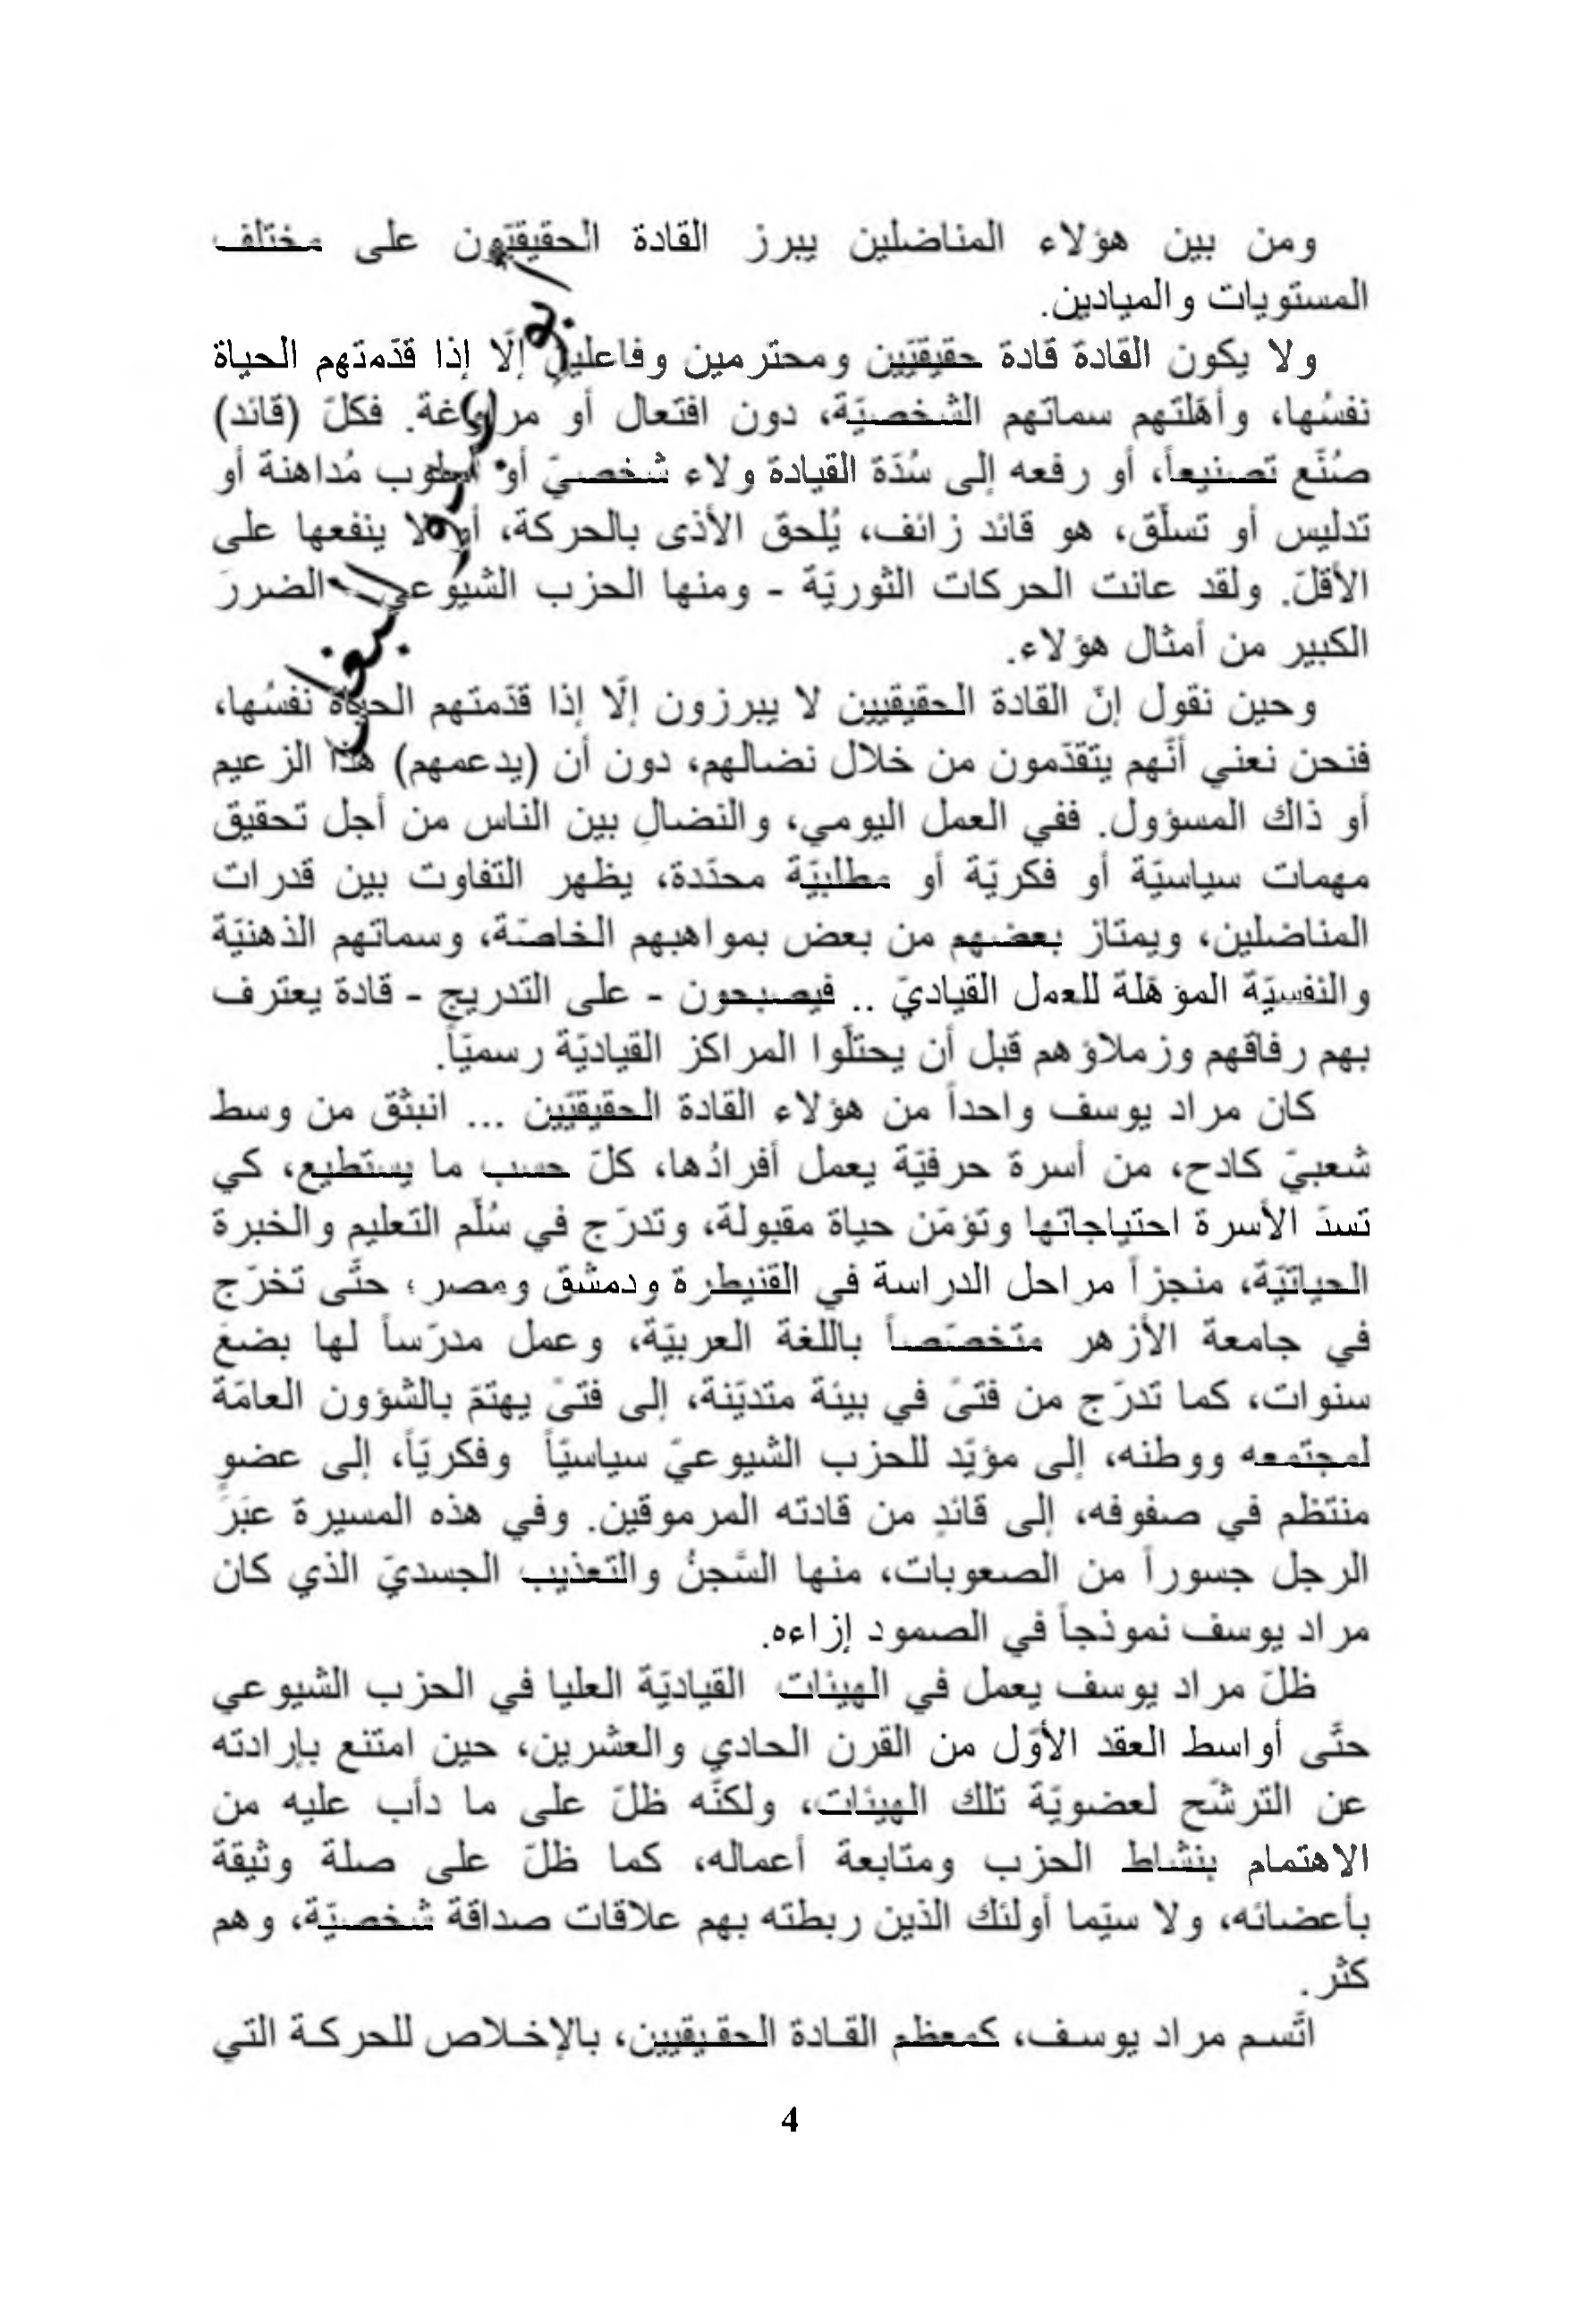 ومن بين هؤلاء المناضلين يبرز القادة الحقيقيّون على مختلف
المستويات والميادين.
ولا يكون القادة قادة حقيقيّين ومحترمين وفاعلين إلّا إذا قدّمتهم الحياة
نفسُها، وأهّلتهم سماتهم الشخصيّة، دون افتعال أو مراوغة. فكلّ (قائد)
صُنّع تصنيعاً، أو رفعه إلى سُدّة القيادة ولاء شخصيّ أو أسلوب مُداهنة أو
تدليس أو تسلّق، هو قائد زائف، يُلحق الأذى بالحركة، أو لا ينفعها على
الأقلّ. ولقد عانت الحركات الثوريّة - ومنها الحزب الشيوعي الضررَ
الكبير من أمثال هؤلاء.
وحين نقول إنّ القادة الحقيقيين لا يبرزون إلّا إذا قدّمتهم الحياة نفسُها،
فنحن نعني أنّهم يتقدّمون من خلال نضالهم، دون أن (يدعمهم) هذا الزعيم
أو ذاك المسؤول. ففي العمل اليومي، والنضالِ بين الناس من أجل تحقيق
مهمات سياسيّة أو فكريّة أو مطلبيّة محدّدة، يظهر التفاوت بين قدرات
المناضلين، ويمتاز بعضهم من بعض بمواهبهم الخاصّة، وسماتهم الذهنيّة
والنفسيّة المؤهّلة للعمل القياديّ .. فيصبحون - على التدريج - قادة يعترف
بهم رفاقهم وزملاؤهم قبل أن يحتلّوا المراكز القياديّة رسميّاً.
كان مراد يوسف واحداً من هؤلاء القادة الحقيقيّين ... انبثق من وسط
شعبيّ كادح، من أسرة حرفيّة يعمل أفرادُها، كلّ حسب ما يستطيع، كي
تسدّ الأسرة احتياجاتها وتؤمّن حياة مقبولة، وتدرّج في سُلّم التعليم والخبرة
الحياتيّة، منجزاً مراحل الدراسة في القنيطرة ودمشق ومصر؛ حتّى تخرّج
في جامعة الأزهر متخصّصاً باللّغة العربيّة، وعمل مدرّساً لها بضعَ
سنوات، كما تدرّج من فتىً في بيئة متديّنة، إلى فتىً يهتمّ بالشؤون العامّة
لمجتمعه ووطنه، إلى مؤيّد للحزب الشيوعيّ سياسيّاً وفكريّاً، إلى عضوٍ
منتظم في صفوفه، إلى قائدٍ من قادته المرموقين. وفي هذه المسيرة عبَرَ
الرجل جسوراً من الصعوبات، منها السَّجنُ والتعذيب الجسديّ الذي كان
مراد يوسف نموذجاً في الصمود إزاءه.
ظلّ مراد يوسف يعمل في الهيئات القياديّة العليا في الحزب الشيوعي
حتَّى أواسط العقد الأوّل من القرن الحادي والعشرين، حين امتنع بإرادته
عن الترشّح لعضويّة تلك الهيئات، ولكنّه ظلّ على ما دأب عليه من
الاهتمام بنشاط الحزب ومتابعة أعماله، كما ظلّ على صلة وثيقة
بأعضائه، ولا سيّما أولئك الذين ربطته بهم علاقات صداقة شخصيّة، وهم
كثر.
اتَّسم مراد يوسف، كمعظم القادة الحقيقيين، بالإخلاص للحركة التي
4